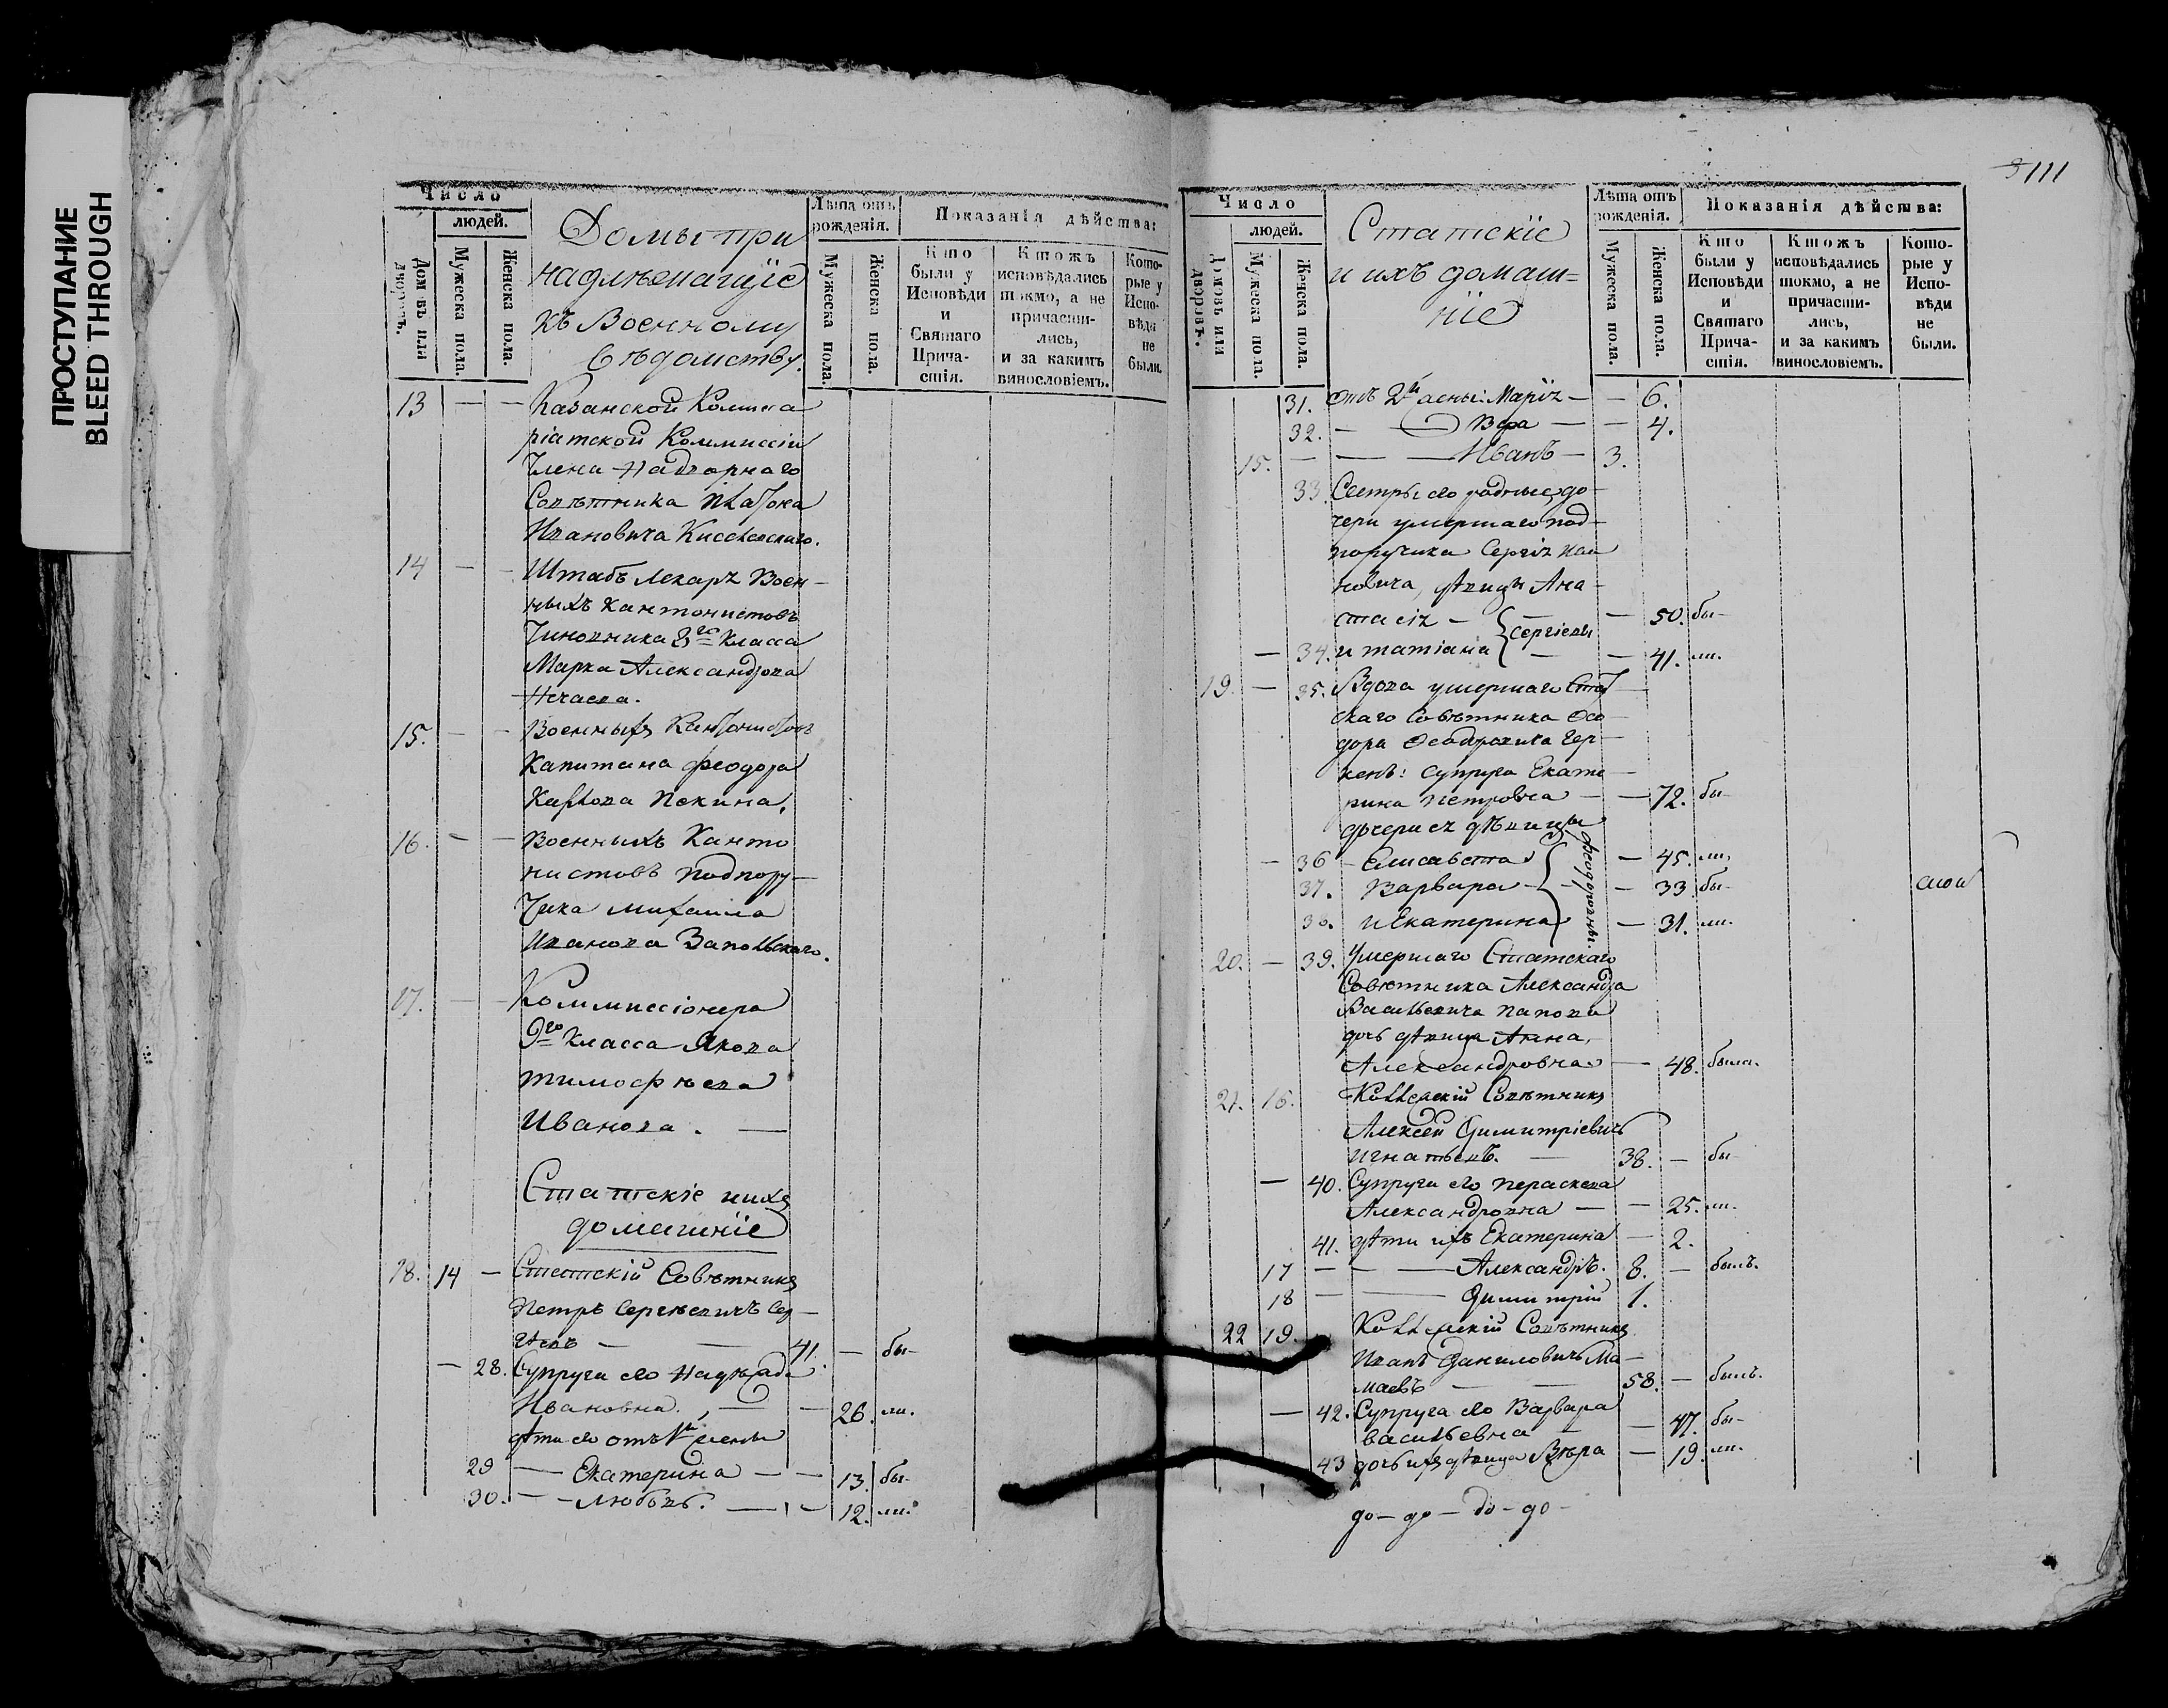 ПРОСТУПАНИЕ
BLEED THROUGH
Число
людей.
Домовъ или дворовъ.
Мужеска пола.
Женска пола.
Домы при
надлѣжащіе
къ Военному
вѣдомству.
Лѣта отъ рожденія.
Мужеска пола.
Женска пола.
Показанія дѣйства:
Кто были у Исповѣди и Святаго Причастія.
Ктожъ исповѣдались токмо, а не причастились, и за какимъ винословіемъ.
Которые у Исповѣди не были.
13 — — Казанской Коммиса
ріатской Коммиссіи
Члена Надворнаго
Совѣтника Платона
Ивановича
14 — — Штабъ Лекаря Воен-
ныхъ Кантонистовъ
Чиновника 8го Класса
Марка Александрова
Нечаева.
15. — — Военныхъ Кантонистовъ
Капитана Феодора
Карпова Пекина.
16. — — Военныхъ Канто
нистовъ Подпору-
чика Михаила
Иванова Запольскаго.
17. — — Коммиссіонера
9го Класса Якова
Тимофѣева
Иванова. —
Статскіе и ихъ
домашніе
18. 14 — Статскій Совѣтникъ
Петръ Сергѣевичъ Сер-
гѣевъ — — 41. — бы-
— 28. Супруга его Надѣжда
Ивановна. — — 26. ли.
дѣти его отъ 1й жены
29 — Екатерина — — 13. бы-
30. — — Любовь. — — 12. ли.
111
Число
людей.
Домовъ или дворовъ.
Мужеска пола.
Женска пола.
Статскіе
и ихъ домаш=
ніе
Лѣта отъ рожденія.
Мужеска пола.
Женска пола.
Показанія дѣйства:
Кто были у Исповѣди и Святаго Причастія.
Ктожъ исповѣдались токмо, а не причастились, и за какимъ винословіемъ.
Которые у Исповѣди не были.
31. отъ 2й жены: Марія — — 6.
32. — Вѣра — — 4.
15. — — — Иванъ — 3.
33. Сестры его родные, до-
чери умершаго под-
поручика Сергія Ива
новича, дѣвицы Ана-
стасія — { Сергіевы — 50. бы-
— 34. и Татіана — — 41. ли.
19. — 35. Вдова умершаго Стат-
скаго Совѣтника Фео-
дора Феодоровича
супруга Екате-
рина Петровна — — 72. бы-
дочери ея дѣвицы
— 36 — Елисавета { Феодоровны. — 45. ли,
37. Варвара — — 33. бы-
38. и Екатерина — 31. ли.
20. — 39. Умершаго Статскаго
Совѣтника Александра
Васильевича Попова
дочь дѣвица Анна,
Александровна — 48. была.
21. 16. Коллежскій Совѣтникъ
Алексей Димитріевичь
Игнатьевъ. — 38. — бы-
— 40. Супруга его Параскева
Александровна — — 25. ли.
41. дѣти ихъ Екатерина — 2.
17 — — — Александръ. 8. — былъ.
18 — — Димитрій 1.
22 19. Коллежскій Совѣтникъ
Иванъ Даниловичь Ма-
маевъ — — 58. — былъ.
— 42. Супруга его Варвара
Васильевна — — 47. бы-
43 дочь ихъ дѣвица Вѣра — 19. ли.
до — до — до — до —